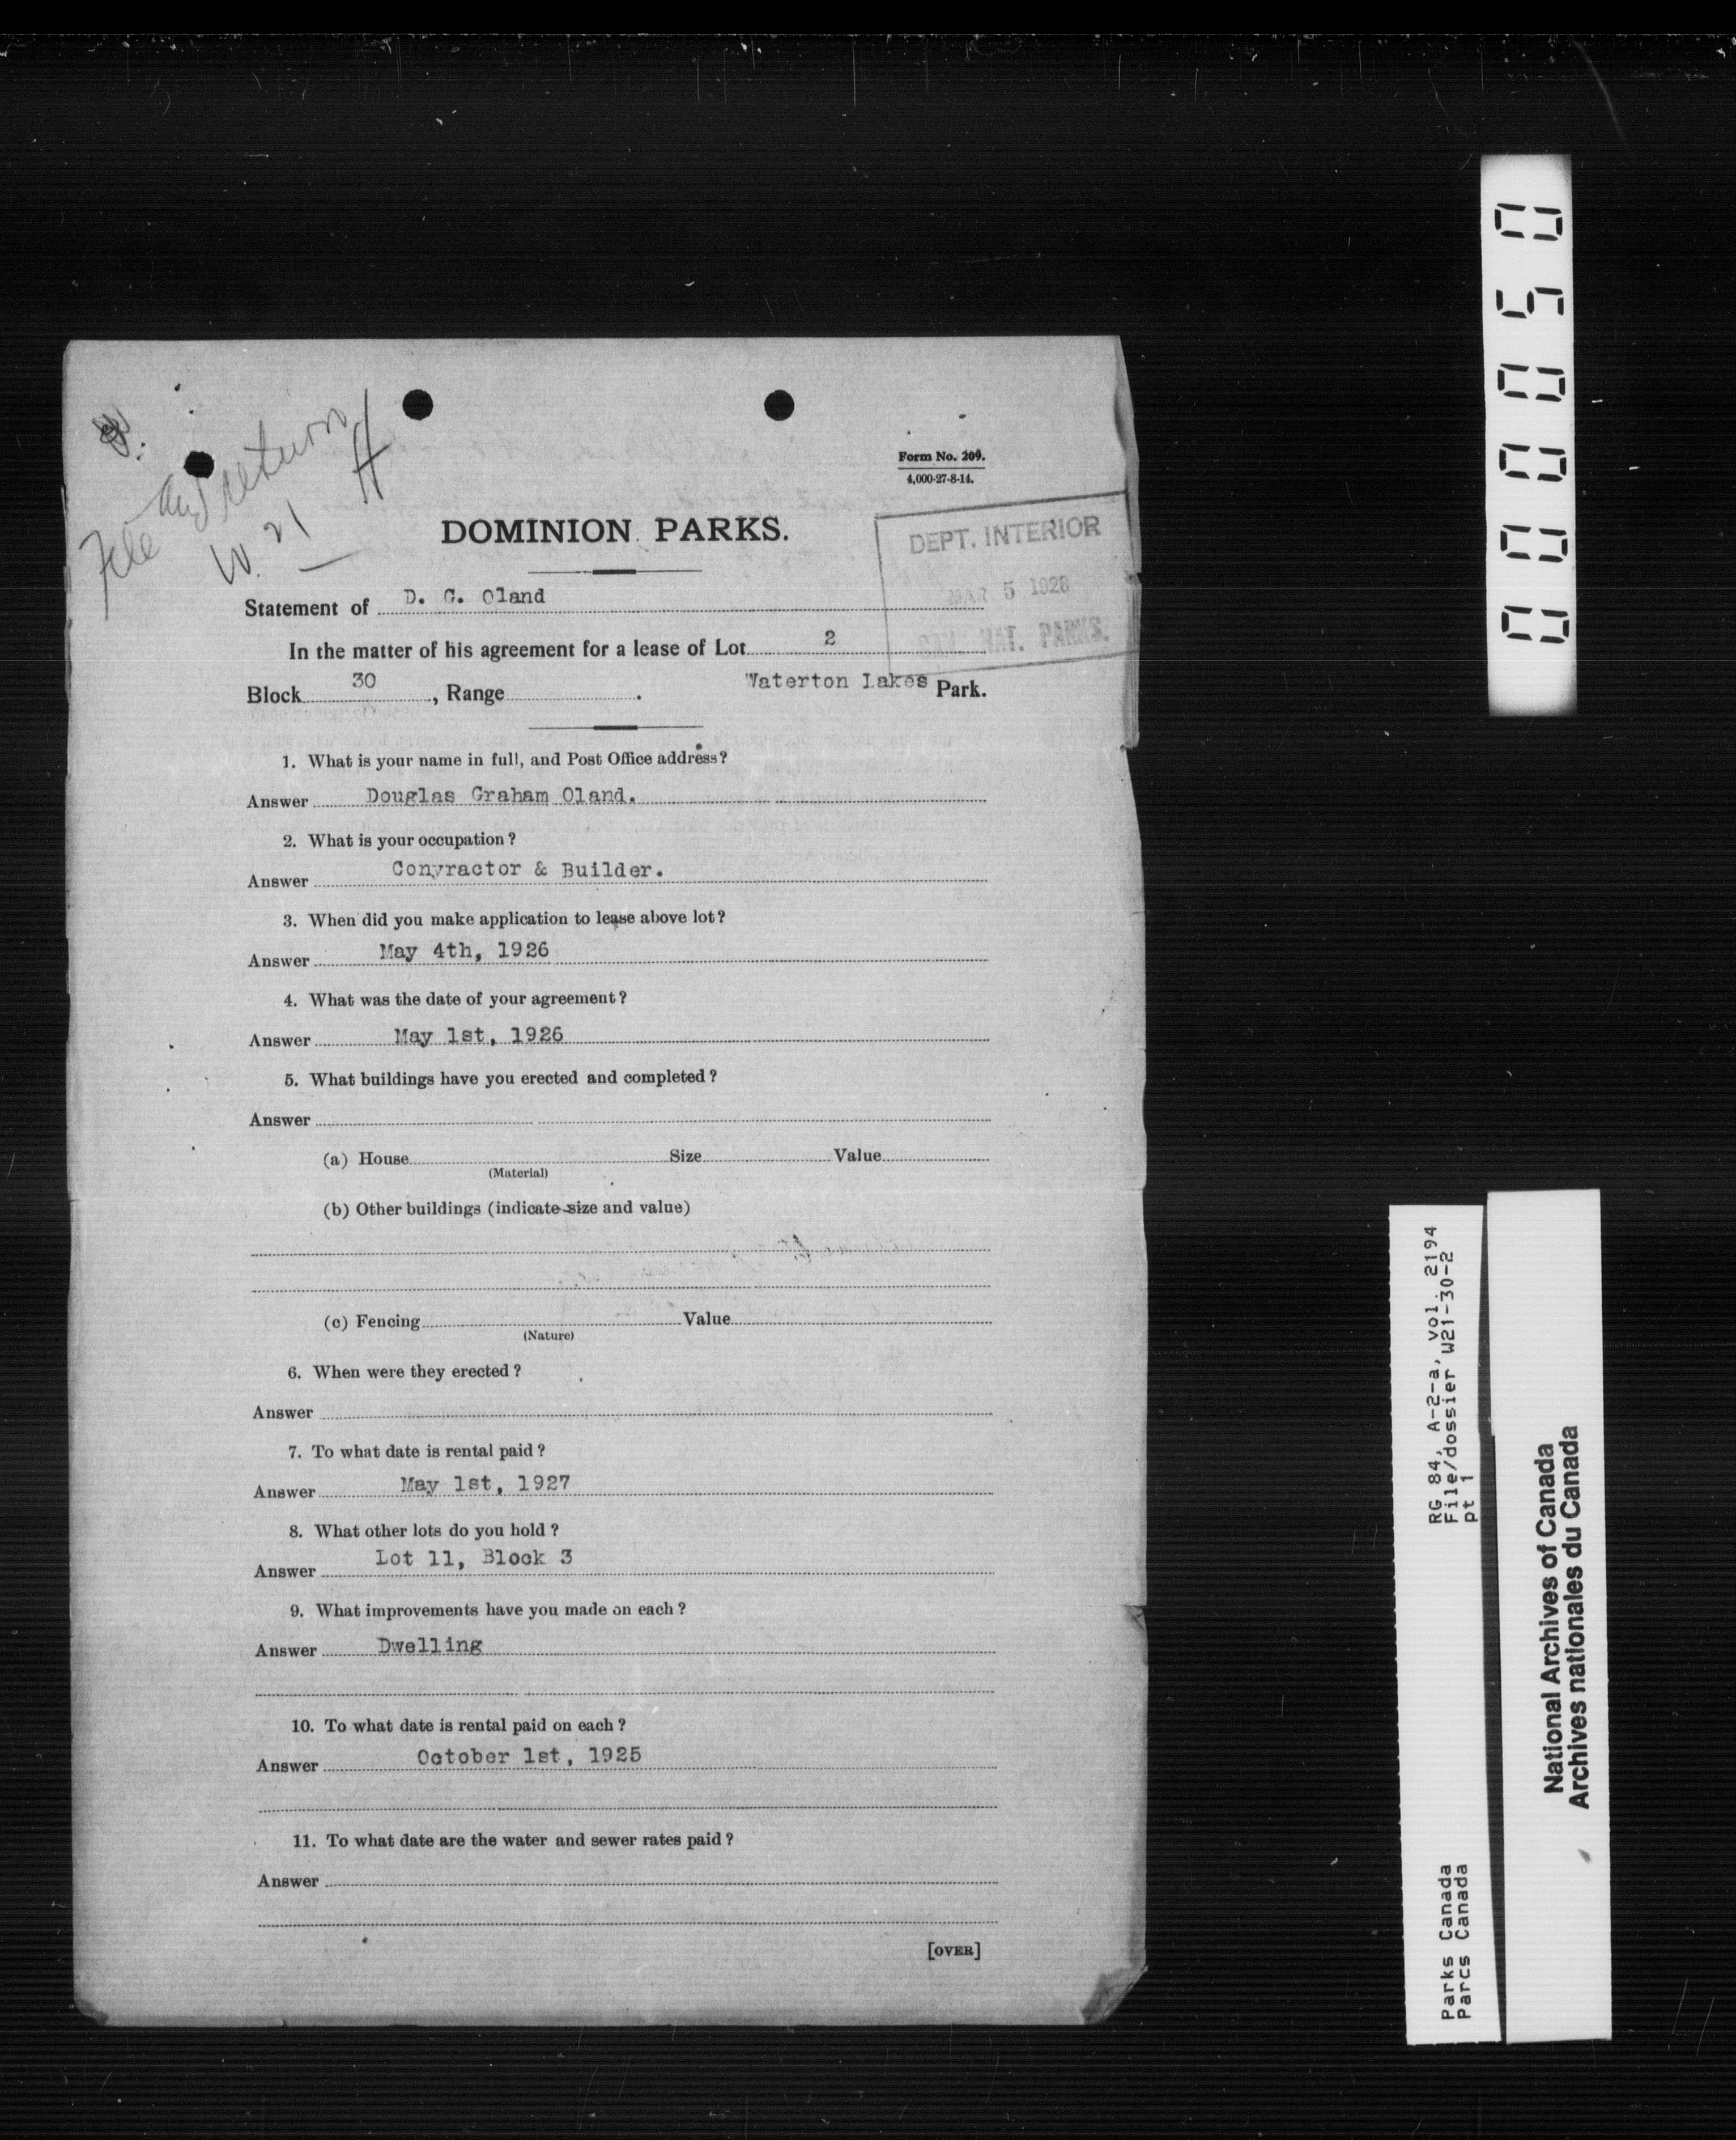 File and return
W. 21
Form No. 209.
4,000-27-8-14.
DOMINION PARKS.
DEPT. INTERIOR
MAR 5 1928
CAN. NAT. PARKS.
Statement of D. G. Oland
In the matter of his agreement for a lease of Lot 2
Block 30, Range . Waterton Lakes Park.
1. What is your name in full, and Post Office address?
Answer Douglas Graham Oland.
2. What is your occupation?
Answer Conyractor & Builder.
3. When did you make application to lease above lot?
Answer May 4th, 1926
4. What was the date of your agreement?
Answer May 1st, 1926
5. What buildings have you erected and completed?
Answer
(a) House Size Value
(Material)
(b) Other buildings (indicate size and value)
(c) Fencing Value
(Nature)
6. When were they erected?
Answer
7. To what date is rental paid?
Answer May 1st, 1927
8. What other lots do you hold?
Answer Lot 11, Block 3
9. What improvements have you made on each?
Answer Dwelling
10. To what date is rental paid on each?
Answer October 1st, 1925
11. To what date are the water and sewer rates paid?
Answer
[OVER]
000050
RG 84, A-2-a, vol. 2194
File/dossier W21-30-2
pt 1
Parks Canada
Parcs Canada
National Archives of Canada
Archives nationales du Canada